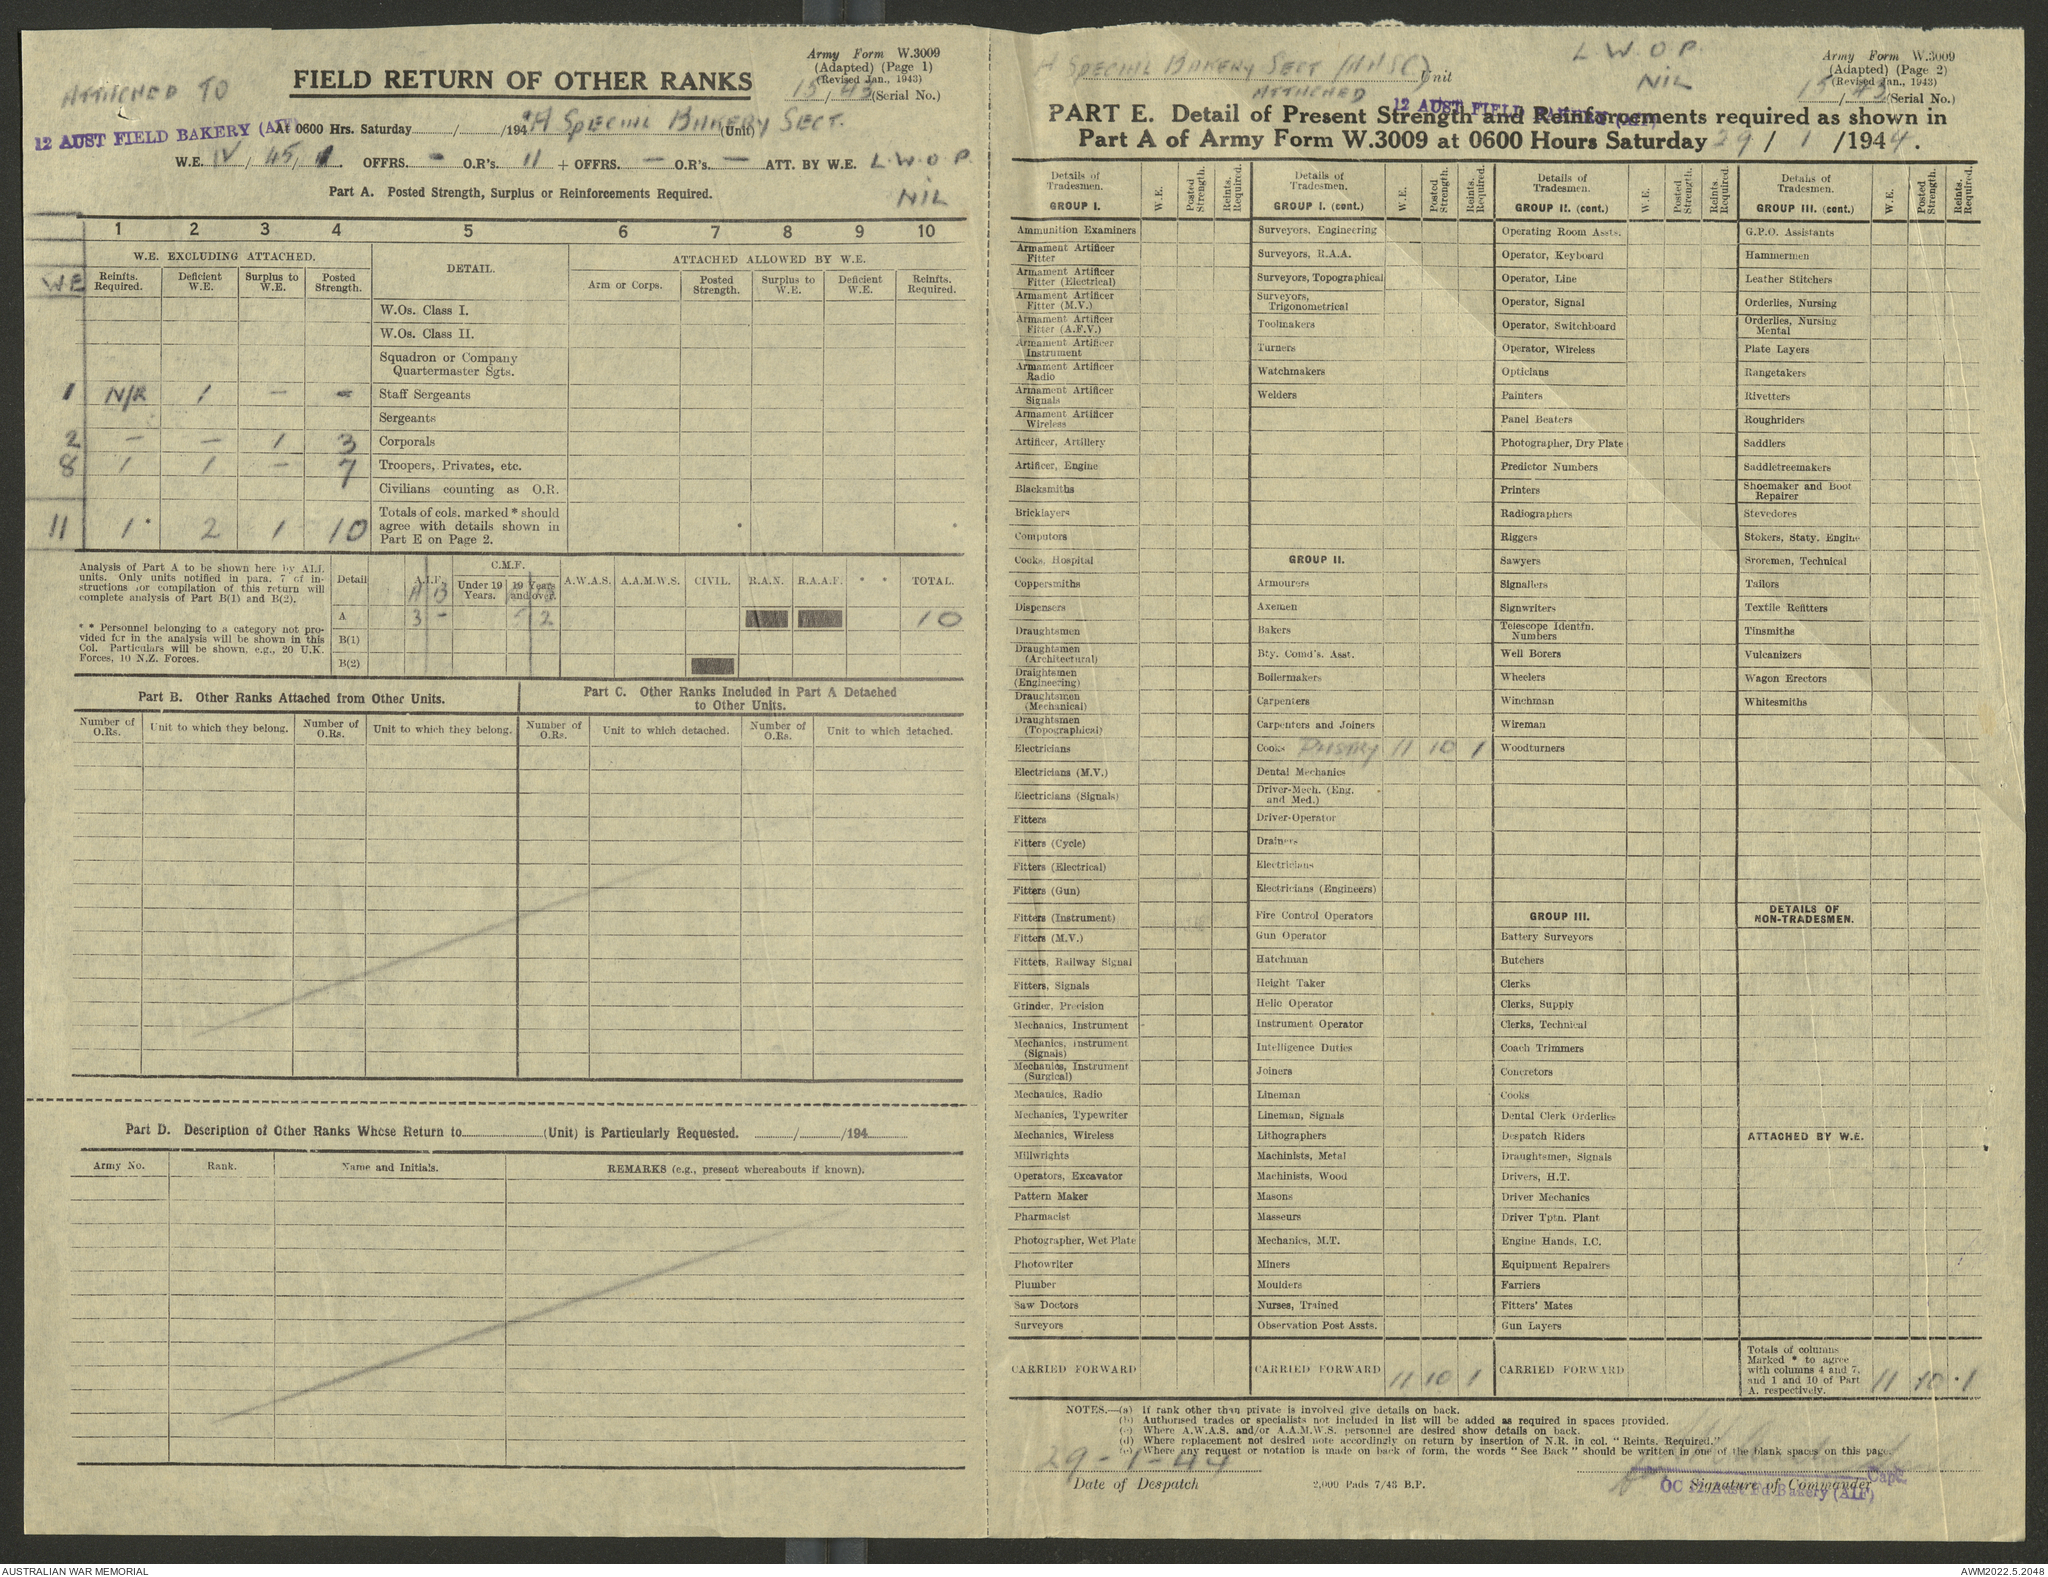 Army Form W.3009
(Adapted) (Page 1)
(Revised Jan., 1943)
15/43 (Serial No.)
ATTACHED TO
FIELD RETURN OF OTHER RANKS
12 AUST FIELD BAKERY (AIF)
At 0600 Hrs. Saturday / /194 "A SPECIAL BAKERY SECT. (Unit)
W.E. IV / 45 / 1. OFFRS. - O.R's. 11 + OFFRS. - O.R's. - ATT. BY W.E. L.W.O.P.
NIL
Part A. Posted Strength, Surplus or Reinforcements Required.
1 2 3 4 5 6 7 8 9 10
W.E. EXCLUDING ATTACHED. DETAIL. ATTACHED ALLOWED BY W.E.
WE Reinfts. Required. Deficient W.E. Surplus to W.E. Posted Strength. Arm or Corps. Posted Strength. Surplus to W.E. Deficient W.E. Reinfts. Required.
W.Os. Class I.
W.Os. Class II.
Squadron or Company
Quartermaster Sgts.
1 N/R 1 - - Staff Sergeants
Sergeants
2 - - 1 3 Corporals
8 1 1 - 7 Troopers, Privates, etc.
Civilians counting as O.R.
11 1 * 2 1 10 Totals of cols. marked * should
agree with details shown in
Part E on Page 2.
Analysis of Part A to be shown here by ALL
units. Only units notified in para. 7 of in-
structions for compilation of this return will
complete analysis of Part B(1) and B(2).
* * Personnel belonging to a category not pro-
vided for in the analysis will be shown in this
Col. Particulars will be shown, e.g., 20 U.K.
Forces, 10 N.Z. Forces.
Detail A.I.F. C.M.F. Under 19 Years. 19 Years and over. A.W.A.S. A.A.M.W.S. CIVIL. R.A.N. R.A.A.F. * * TOTAL.
A B
A 3 - 5 2 10
B(1)
B(2)
Part B. Other Ranks Attached from Other Units.
Part C. Other Ranks Included in Part A Detached
to Other Units.
Number of O.Rs. Unit to which they belong. Number of O.Rs. Unit to which they belong. Number of O.Rs. Unit to which detached. Number of O.Rs. Unit to which detached.
Part D. Description of Other Ranks Whose Return to (Unit) is Particularly Requested. / /194
Army No. Rank. Name and Initials. REMARKS (e.g., present whereabouts if known).
A SPECIAL BAKERY SECT (AASC) Unit
ATTACHED
12 AUST FIELD BAKERY (AIF)
L.W.O.P.
NIL
Army Form W.3009
(Adapted) (Page 2)
(Revised Jan., 1943)
15/43 (Serial No.)
PART E. Detail of Present Strength and Reinforcements required as shown in
Part A of Army Form W.3009 at 0600 Hours Saturday 29 / 1 /1944.
Details of Tradesmen. W.E. Posted Strength. Reints. Required.
GROUP I.
Ammunition Examiners
Armament Artificer
Fitter
Armament Artificer
Fitter (Electrical)
Armament Artificer
Fitter (M.V.)
Armament Artificer
Fitter (A.F.V.)
Armament Artificer
Instrument
Armament Artificer
Radio
Armament Artificer
Signals
Armament Artificer
Wireless
Artificer, Artillery
Artificer, Engine
Blacksmiths
Bricklayers
Computors
Cooks, Hospital
Coppersmiths
Dispensers
Draughtsmen
Draughtsmen
(Architectural)
Draughtsmen
(Engineering)
Draughtsmen
(Mechanical)
Draughtsmen
(Topographical)
Electricians
Electricians (M.V.)
Electricians (Signals)
Fitters
Fitters (Cycle)
Fitters (Electrical)
Fitters (Gun)
Fitters (Instrument)
Fitters (M.V.)
Fitters, Railway Signal
Fitters, Signals
Grinder, Precision
Mechanics, Instrument
Mechanics, Instrument
(Signals)
Mechanics, Instrument
(Surgical)
Mechanics, Radio
Mechanics, Typewriter
Mechanics, Wireless
Millwrights
Operators, Excavator
Pattern Maker
Pharmacist
Photographer, Wet Plate
Photowriter
Plumber
Saw Doctors
Surveyors
CARRIED FORWARD
Details of Tradesmen. W.E. Posted Strength. Reints. Required.
GROUP I. (cont.)
Surveyors, Engineering
Surveyors, R.A.A.
Surveyors, Topographical
Surveyors,
Trigonometrical
Toolmakers
Turners
Watchmakers
Welders
GROUP II.
Armourers
Axemen
Bakers
Bty. Comd's. Asst.
Boilermakers
Carpenters
Carpenters and Joiners
Cooks PASTRY 11 10 1
Dental Mechanics
Driver-Mech. (Eng.
and Med.)
Driver-Operator
Drainers
Electricians
Electricians (Engineers)
Fire Control Operators
Gun Operator
Hatchman
Height Taker
Helio Operator
Instrument Operator
Intelligence Duties
Joiners
Lineman
Lineman, Signals
Lithographers
Machinists, Metal
Machinists, Wood
Masons
Masseurs
Mechanics, M.T.
Miners
Moulders
Nurses, Trained
Observation Post Assts.
CARRIED FORWARD 11 10 1
Details of Tradesmen. W.E. Posted Strength. Reints. Required.
GROUP II. (cont.)
Operating Room Assts.
Operator, Keyboard
Operator, Line
Operator, Signal
Operator, Switchboard
Operator, Wireless
Opticians
Painters
Panel Beaters
Photographer, Dry Plate
Predictor Numbers
Printers
Radiographers
Riggers
Sawyers
Signallers
Signwriters
Telescope Identfn.
Numbers
Well Borers
Wheelers
Winchman
Wireman
Woodturners
GROUP III.
Battery Surveyors
Butchers
Clerks
Clerks, Supply
Clerks, Technical
Coach Trimmers
Concretors
Cooks
Dental Clerk Orderlies
Despatch Riders
Draughtsmen, Signals
Drivers, H.T.
Driver Mechanics
Driver Tptn. Plant
Engine Hands, I.C.
Equipment Repairers
Farriers
Fitters' Mates
Gun Layers
CARRIED FORWARD
Details of Tradesmen. W.E. Posted Strength. Reints. Required.
GROUP III. (cont.)
G.P.O. Assistants
Hammermen
Leather Stitchers
Orderlies, Nursing
Orderlies, Nursing
Mental
Plate Layers
Rangetakers
Rivetters
Roughriders
Saddlers
Saddletreemakers
Shoemaker and Boot
Repairer
Stevedores
Stokers, Staty. Engine
Sroremen, Technical
Tailors
Textile Refitters
Tinsmiths
Vulcanizers
Wagon Erectors
Whitesmiths
DETAILS OF
NON-TRADESMEN.
ATTACHED BY W.E.
Totals of columns
Marked * to agree
with columns 4 and 7,
and 1 and 10 of Part
A. respectively. 11 10 1
NOTES.—(a) If rank other than private is involved give details on back.
(b) Authorised trades or specialists not included in list will be added as required in spaces provided.
(c) Where A.W.A.S. and/or A.A.M.W.S. personnel are desired show details on back.
(d) Where replacement not desired note accordingly on return by insertion of N.R. in col. "Reints. Required."
(e) Where any request or notation is made on back of form, the words "See Back" should be written in one of the blank spaces on this page.
29-1-44
Date of Despatch
2,000 Pads 7/43 B.P.
Capt.
Signature of Commander
OC 12 Aust Fd Bakery (AIF)
AUSTRALIAN WAR MEMORIAL
AWM2022.5.2048